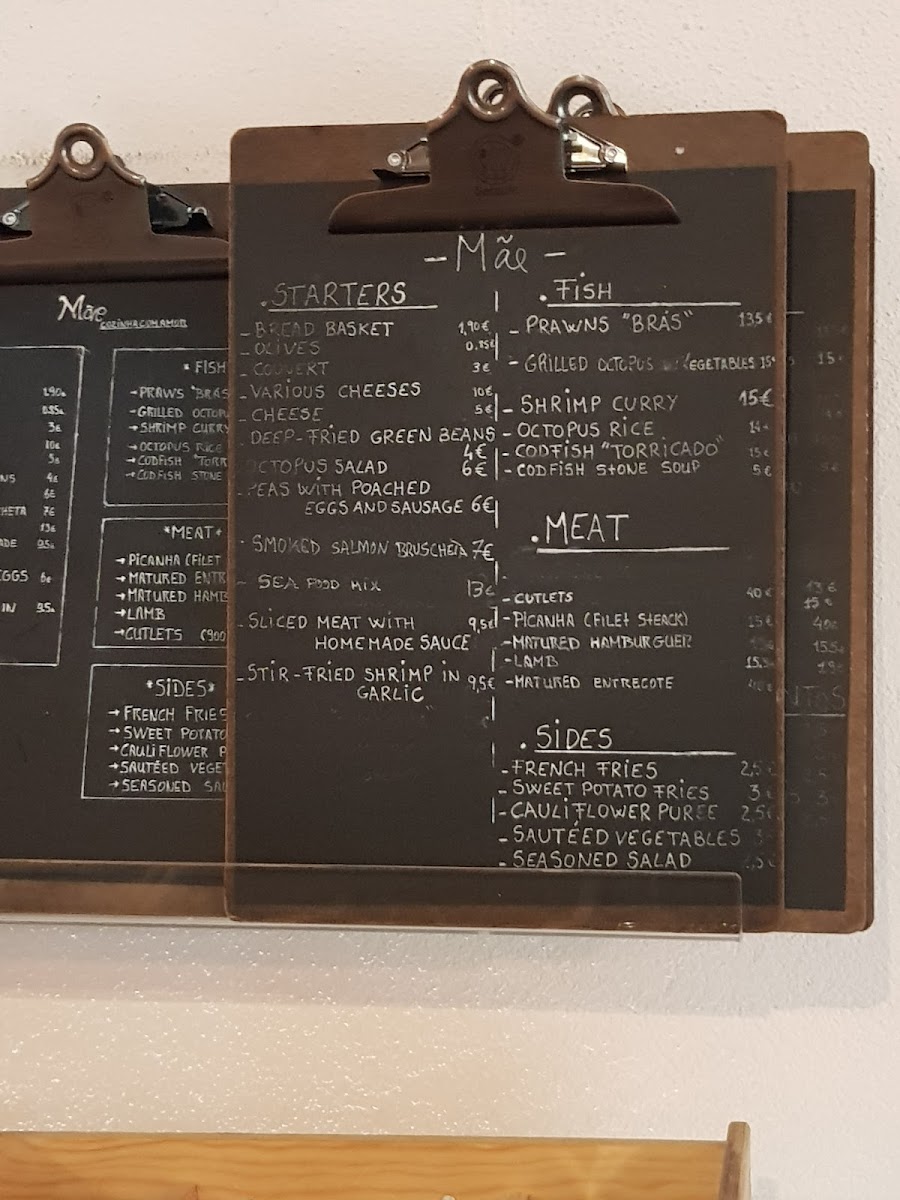 Mãe
COZINHA COM AMOR
1.90€
0.85€
3€
10€
5€
4€
6€
7€
13€
9.5€
EGGS 6€
IN 9.5€
* FISH
→PRAWS "BRAS
→GRILLED OCTOPU
→SHRIMP CURRY
→OCTOPUS RICE
→CODFISH "TORR
→CODFISH STONE
*MEAT*
→PICANHA (FILET
→MATURED ENTR
→MATURED HAMB
→LAMB
→CUTLETS (900
*SIDES*
→FRENCH FRIES
→SWEET POTATO
→CAULIFLOWER P
→SAUTÉED VEGE
→SEASONED SAL
- Mãe -
. STARTERS
- BREAD BASKET 1,90€
- OLIVES 0,85€
- COUVERT 3€
- VARIOUS CHEESES 10€
- CHEESE 5€
. DEEP-FRIED GREEN BEANS
4€
OCTOPUS SALAD 6€
- PEAS WITH POACHED
EGGS AND SAUSAGE 6€
- SMOKED SALMON BRUSCHETA 7€
- SEA FOOD MIX 13€
- SLICED MEAT WITH 9,5€
HOMEMADE SAUCE
- STIR-FRIED SHRIMP IN 9,5€
GARLIC
. FISH
- PRAWNS "BRÁS" 13,5€
- GRILLED OCTOPUS VEGETABLES 15€
- SHRIMP CURRY 15€
- OCTOPUS RICE 14€
- CODFISH "TORRICADO" 15€
- CODFISH STONE SOUP 5€
. MEAT
- CUTLETS 40€
- PICANHA (FILET STEACK) 15€
- MATURED HAMBURGUER
- LAMB 15.5€
- MATURED ENTRECOTE
. SIDES
- FRENCH FRIES 2,5€
- SWEET POTATO FRIES 3€
- CAULIFLOWER PUREE 2,5€
- SAUTÉED VEGETABLES 3€
- SEASONED SALAD 2,5€
15€
15€
40€
15.5€
NTOS